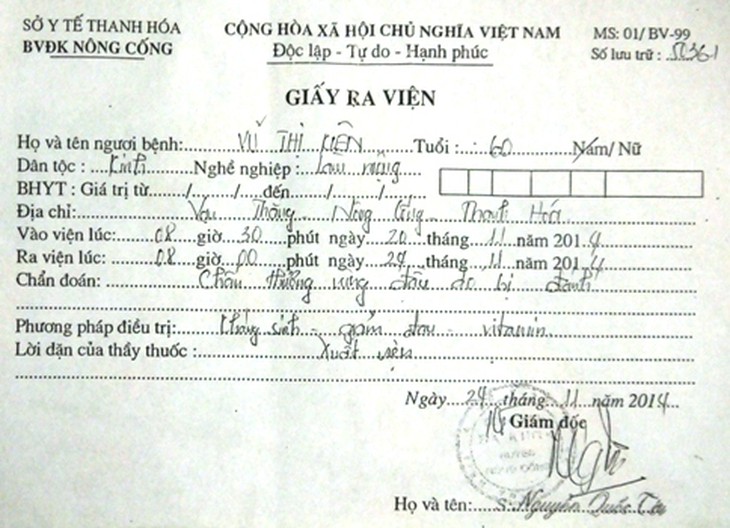 SỞ Y TẾ THANH HÓA
BVĐK NÔNG CỐNG
CỘNG HÒA XÃ HỘI CHỦ NGHĨA VIỆT NAM
Độc lập - Tự do - Hạnh phúc
MS: 01/ BV-99
Số lưu trữ : 50361
GIẤY RA VIỆN
Họ và tên ngươi bệnh: VŨ THỊ KIÊN Tuổi : 60 Nam/ Nữ
Dân tộc : Kinh Nghề nghiệp : Làm ruộng
BHYT : Giá trị từ....../....../...... đến ....../....../......
Địa chỉ: Vạn Thắng Nông Cống Thanh Hóa
Vào viện lúc: 08 giờ 30 phút ngày 20 tháng 11 năm 2014
Ra viện lúc: 08 giờ 00 phút ngày 24 tháng 11 năm 2014
Chẩn đoán: Chấn thương vùng đầu do bị đánh
Phương pháp điều trị: Kháng sinh - giảm đau - vitamin
Lời dặn của thầy thuốc : Xuất viện
Ngày 24 tháng 11 năm 2014
Giám đốc
Họ và tên: Nguyễn Quốc